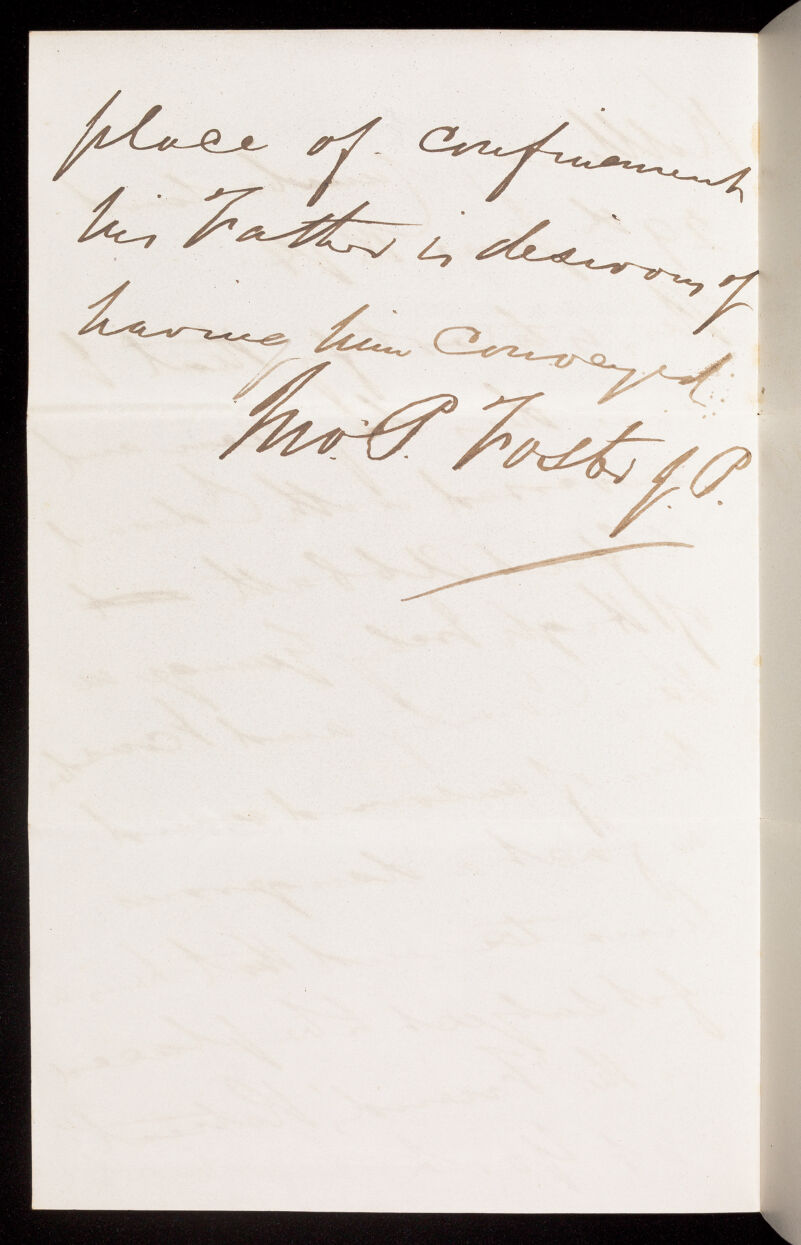 place of confinement
his Father is desirous of
having him conveyed
Jno. P. Foster J. P.